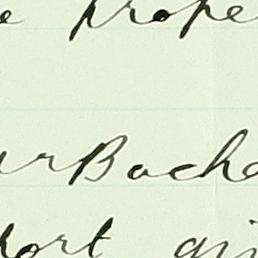 e prope
ur Bache
port gi